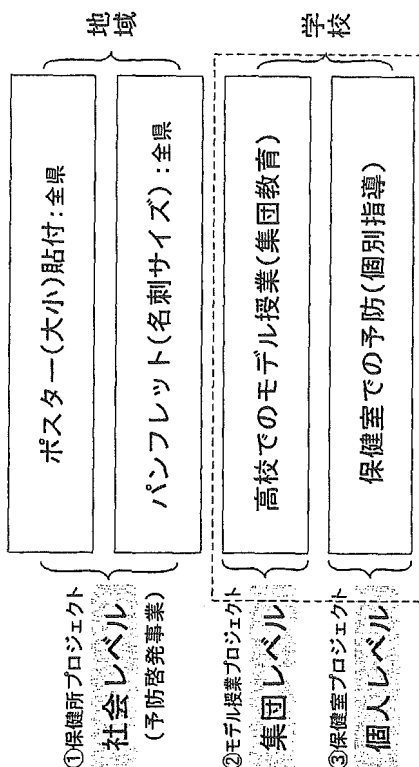 ①保健所プロジェクト
社会レベル
(予防啓発事業)
ポスター(大小)貼付:全県
パンフレット(名刺サイズ):全県
地域
②モデル授業プロジェクト
集団レベル
高校でのモデル授業(集団教育)
③保健室プロジェクト
個人レベル
保健室での予防(個別指導)
学校